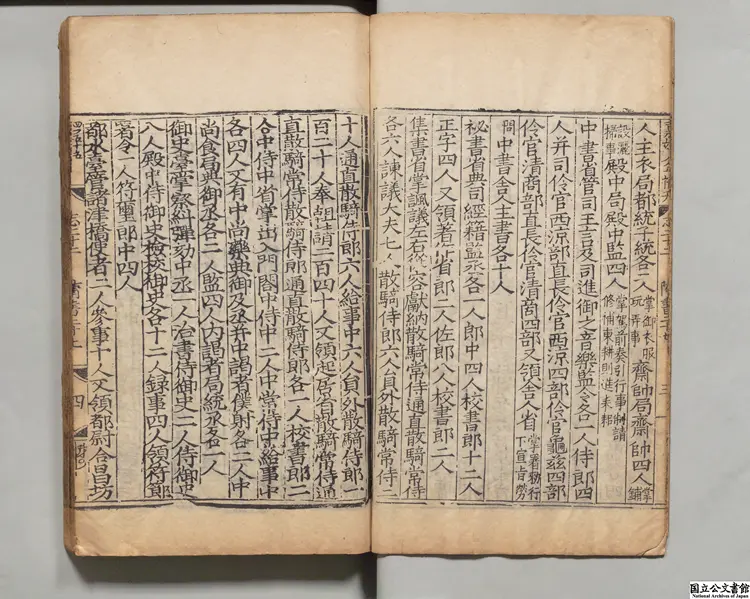 人主衣局都統子統各二人掌御衣服玩弄事齋帥局齋帥四人掌鋪
設灑掃事殿中局殿中監四人掌駕前奏引行事制請修補東耕則進耒耜
中書省管司王言及司進御之音樂監令各一人侍郎四
人并司伶官西涼部直長伶官西涼四部伶官龜茲四部
伶官清商部直長伶官清商四部又領舍人省掌署勑行下宣旨勞
問中書舍人主書各十人
祕書省典司經籍監丞各一人郎中四人校書郎十二人
正字四人又領著作省郎二人佐郎八人校書郎二人
集書省掌諷議左右從容獻納散騎常侍通直散騎常侍
各六人諫議大夫七人散騎侍郎六人員外散騎常侍二
十人通直散騎侍郎六人給事中六人員外散騎侍郎一
百二十人奉朝請二百四十人又領起居省散騎常侍通
直散騎常侍散騎侍郎通直散騎侍郎各一人校書郎二
合中侍中省掌出入門閤中侍中二人中常侍中給事中
各四人又有中尚藥典御及丞并中謁者僕射各二人中
尚食局典御丞各二人監四人內謁者局統丞各一人
御史臺掌察糾彈劾中丞一人治書侍御史二人侍御史
八人殿中侍御史檢校御史各十二人錄事四人領符節
署令一人符璽郎中四人
都水臺管諸津橋使者二人參事十人又領都尉合昌坊
志二十二 隋書二十七 四
国立公文書館
National Archives of Japan